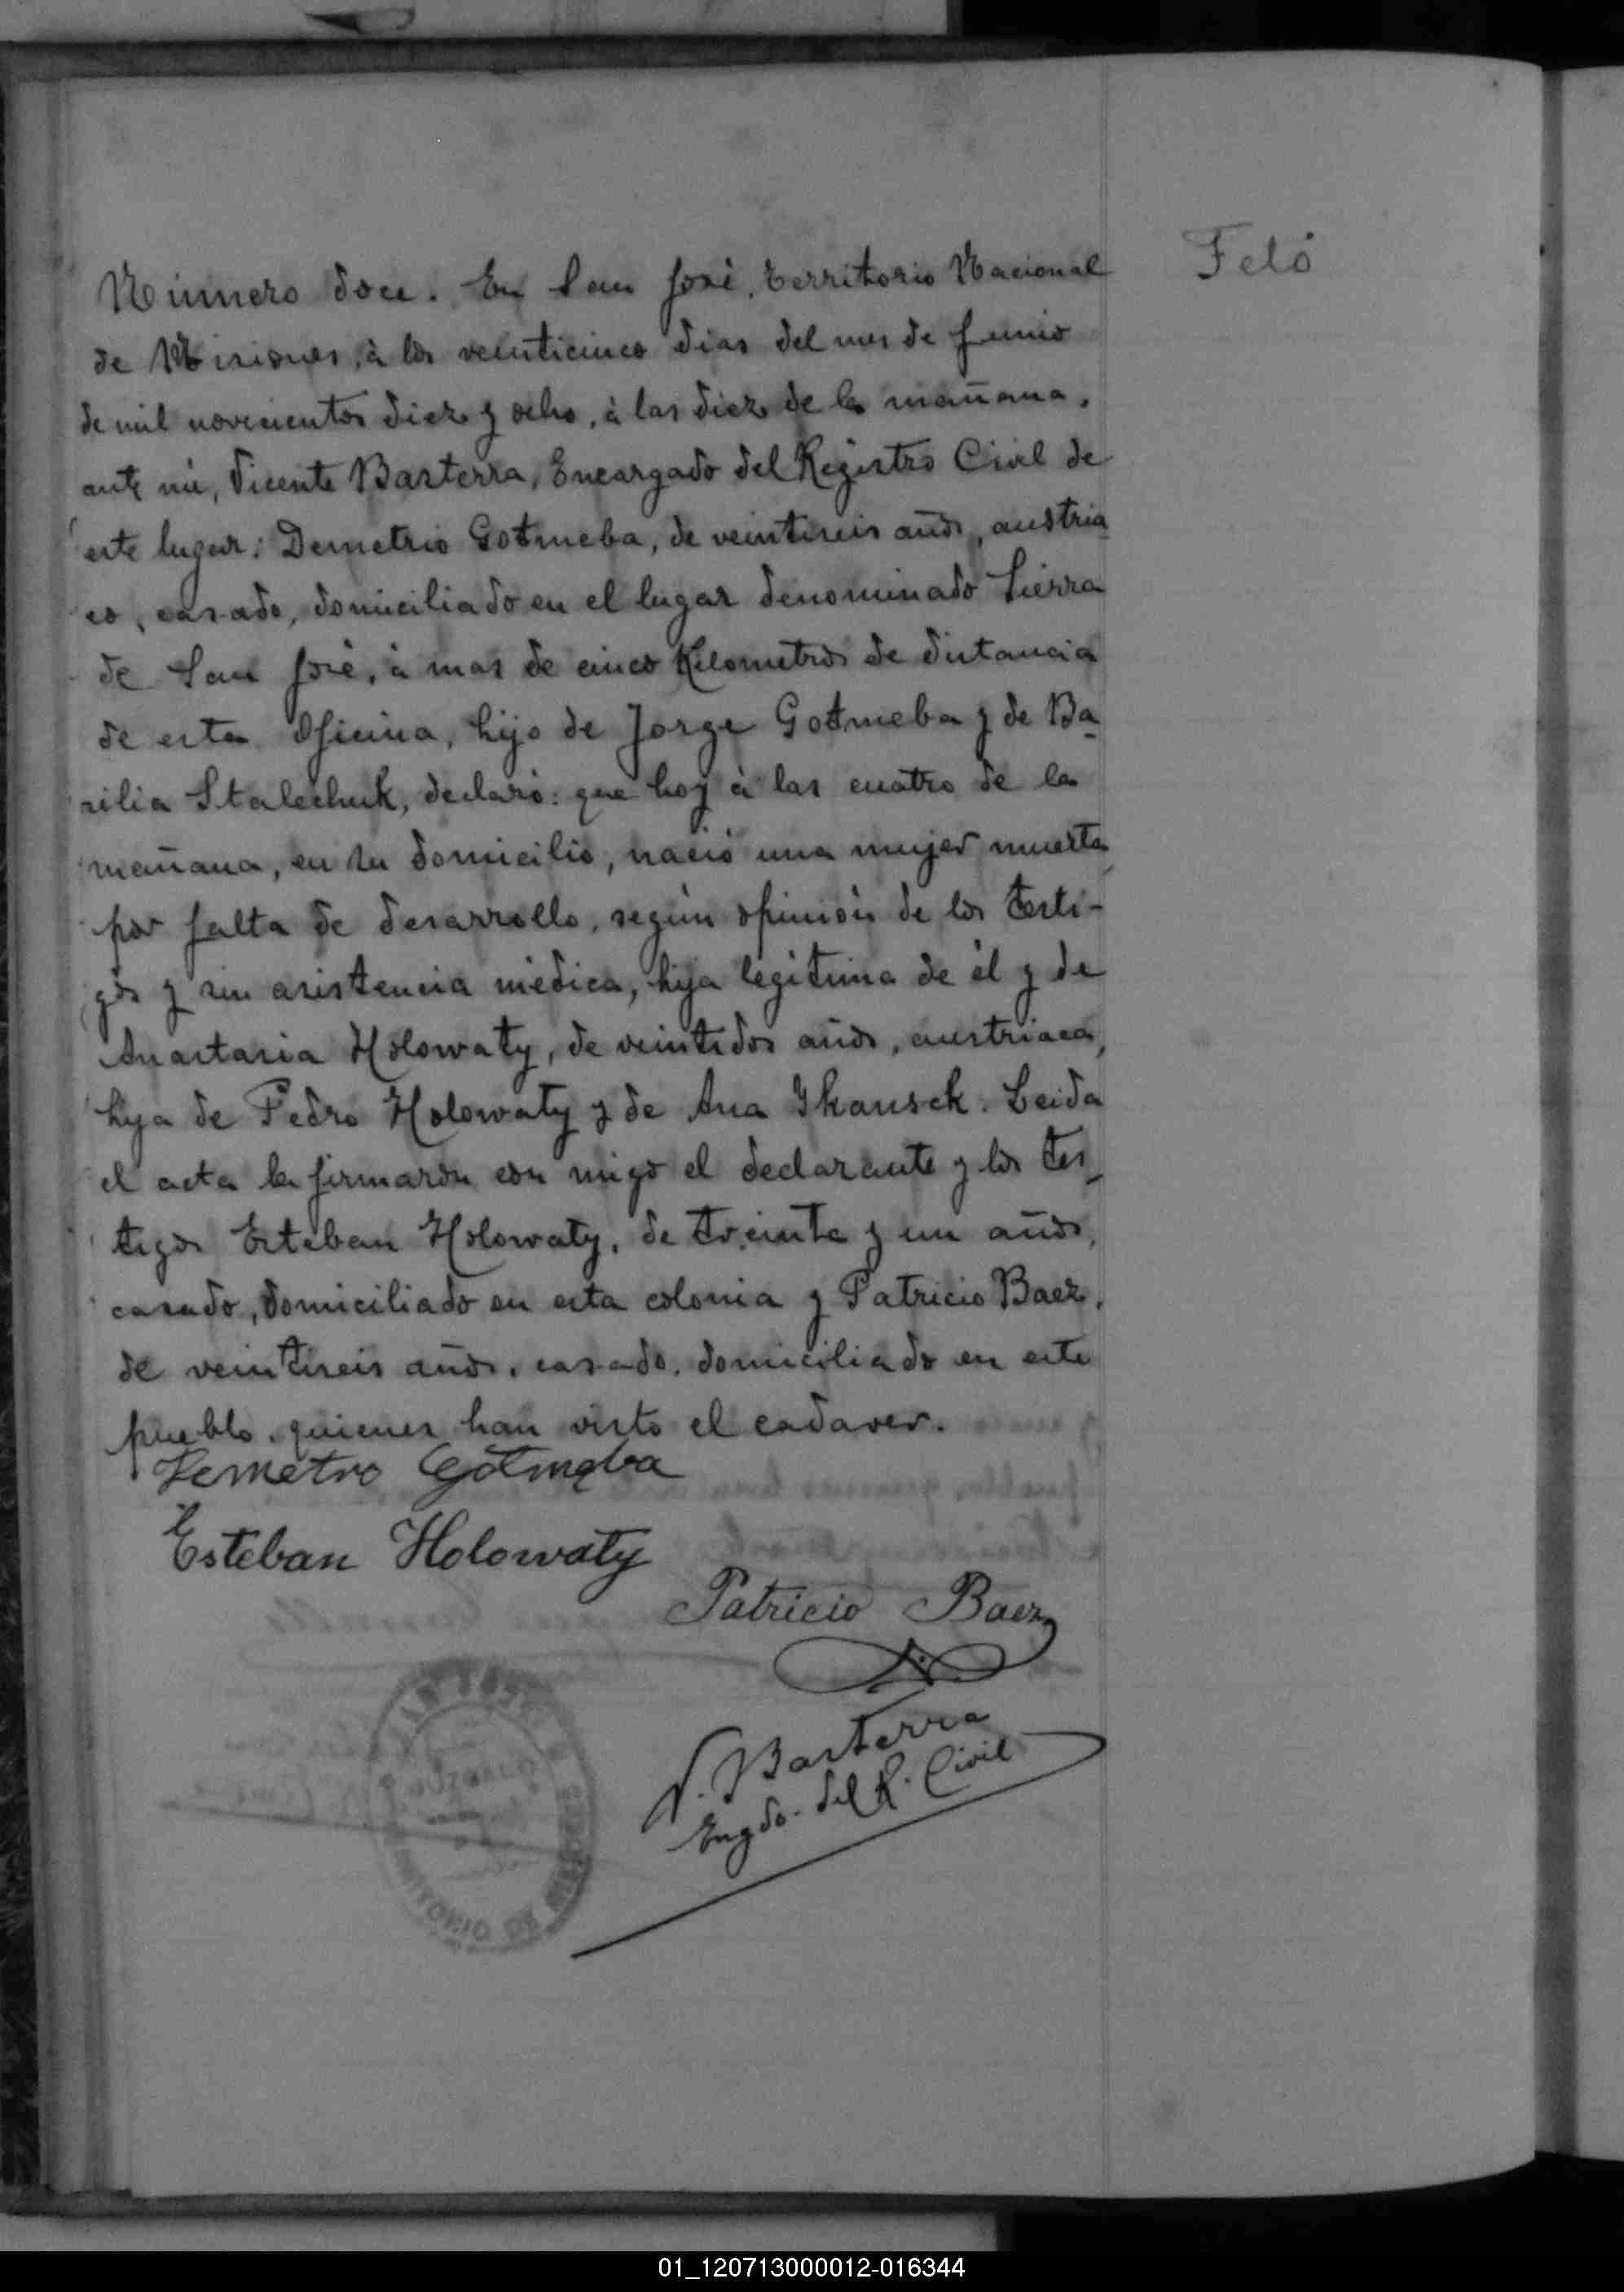 Número doce. En San José, Territorio Nacional
Feto
de Misiones, à los veinticinco dias del mes de Junio
de mil novecientos diez y ocho, à las diez de la mañana,
ante mi, Vicente Basterra, Encargado del Registro Civil de
este lugar: Demetrio Gotmeba, de veintiseis años, austria
co, casado, domiciliado en el lugar denominado Sierra
de San José, à mas de cinco Kilometros de distancia
de esta Oficina, hijo de Jorge Gotmeba y de Ba
silia Stalechuk, declaró: que hoy à las cuatro de la
mañana, en su domicilio, nació una mujer muerta
por falta de desarrollo, según opinión de los testi-
gos y sin asistencia mèdica, hija legìtima de èl y de
Anastasia Holowaty, de veintidos años, austriaca,
hija de Pedro Holowaty y de Ana Ikansek. Leida
el acta la firmaron con migo el declarante y los tes
tigos Esteban Holowaty, de treinta y un años,
casado, domiciliado en esta colonia y Patricio Baez,
de veintiseis años, casado, domiciliado en este
pueblo, quienes han visto el cadaver.
Demetro Gotmeba
Esteban Holowaty
Patricio Baez
V. Basterra
Engdo. del R. Civil
01_120713000012-016344